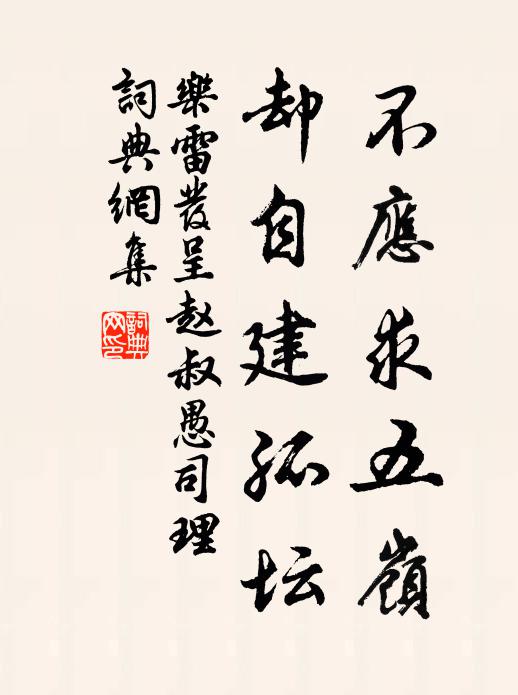 不應求五嶺
却自建孤坛
樂雷發呈赵叔愚司理
詞典網集
詞典网印